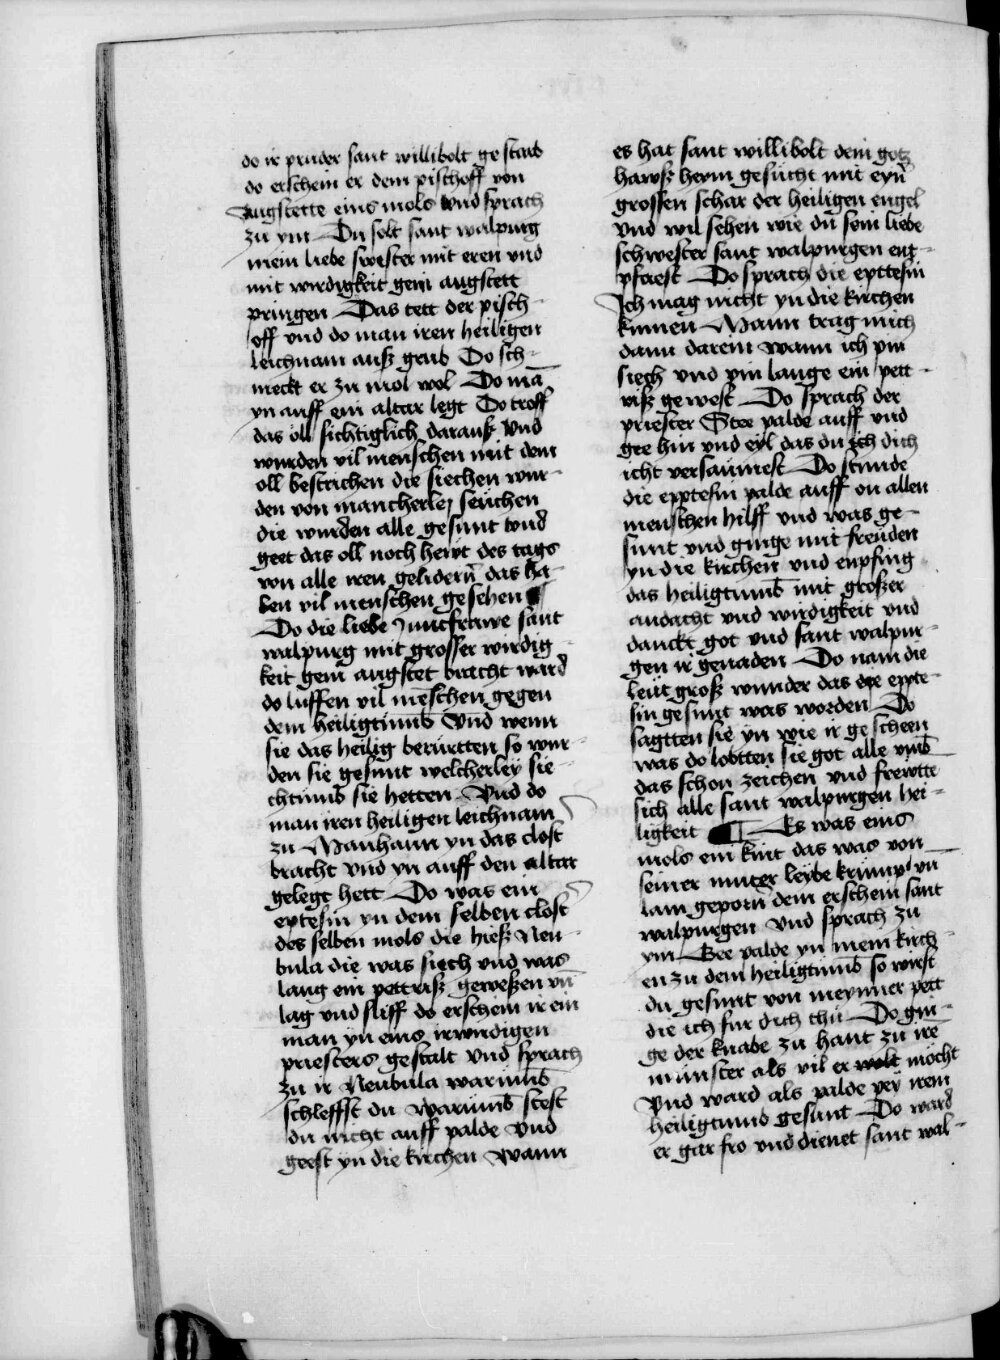 do ir pruder sant willibolt gestarb
do erschein er dem pischoff von
Augstette eins mols vnd sprach
zu ym Du solt sant walpurg
mein liebe swester mit eren vnd
mit wirdigkeit gein augstett
pringen Das tett der pisch-
off vnd do man iren heiligen
leichnam auß grub Do sch-
meckt er zu mol wol Do mā
yn auff ein altar legt Do troff
das öll sichtiglich darauß vnd
wurden vil menschen mit dem
oll bestrichen die siechen wur-
den von mancherley seuchen
die wurden alle gesunt vnd
geet das oll noch hewt des tags
von alle iren gelidern̄ das ha-
ben vil menschen gesehen
Do die liebe Junckfrawe sant
walpurg mit grosser wirdig-
keit gein augstet bracht ward
do luffen vil menschen gegen
dem heiligtumb Vnd wenn
sie das heilig berurtten so wur-
den sie gesunt welcherley sie-
chtumb sie hetten Vnd do
man iren heiligen leichnam
zu Manhaun yn das clost
bracht vnd yn auff den altar
gelegt hett Do was ein
eptesin yn dem selben clost
des selben mols die hieß Neu-
bula die was siech vnd was
lang ein pettriß geweßen vn̄
lag vnd sliff do erschein ir ein
man yn eins irwirdigen
priesters gestalt vnd sprach
zu ir Neubula warumb
schleffst du warumb stest
du nicht auff palde vnd
geest yn die kirchen wann
es hat sant willibolt dein gotz
hawß heym gesucht mit eyn̄
grossen schar der heiligen engel
vnd wil sehen wie du sein liebe
schwester sant walpurgen ent-
pfaest Do sprach die epttesin
Ich mag nicht yn die kirchen
kumen Mann trag mich
dann darein wann ich pin
siech vnd pin lange ein pett-
riß gewest Do sprach der
priester Stee palde auff vnd
gee hin vnd eyl das du ich dich
icht versaumest Do stunde
die epptesin palde auff on allen
menschen hilff vnd was ge-
sunt vnd ginge mit freuden
yn die kirchen vnd enpfing
das heiligtumb mit großer
andacht vnd wirdigkeit vnd
danckt got vnd sant walpur-
gen ir genaden Do nam die
leut groß wunder das die eppte-
sin gesunt was worden Do
sagtten sie yn wie ir gescheen
was do lobtten sie got alle vmb
das schon zeichen vnd frewtte
sich alle sant walpurgen hei-
ligkeit Es was eins
mols ein kint das was von
seiner muter leybe krump vn
lam geporn dem erschein sant
walpurgen vnd sprach zu
ym Gee palde yn mein kirch-
en zu dem heiligtumb so wirst
du gesunt von meynner pett
die ich fur dich thu Do gin-
ge der knabe zu hant zu ire
munster als vil er wolt mocht
Vnd ward als palde pey irem
heiligtumb gesunt Do ward
er gar fro vnd dienet sant wal-